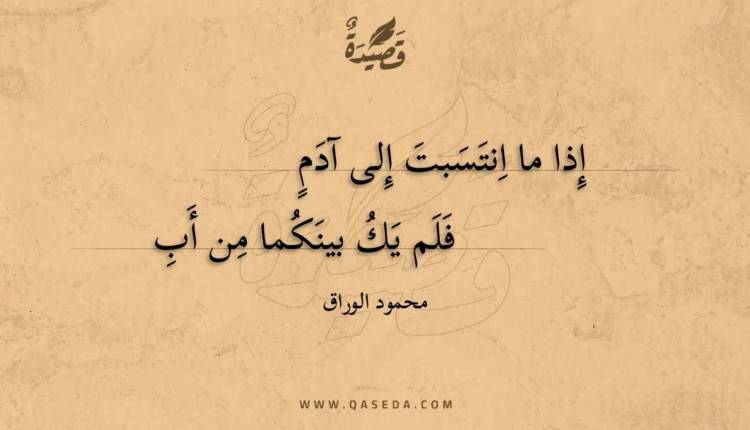 قَصِيدَةٌ
إِذا ما اِنتَسَبتَ إِلى آدَمٍ
فَلَم يَكُ بينَكُما مِن أَبِ
محمود الوراق
WWW.QASEDA.COM